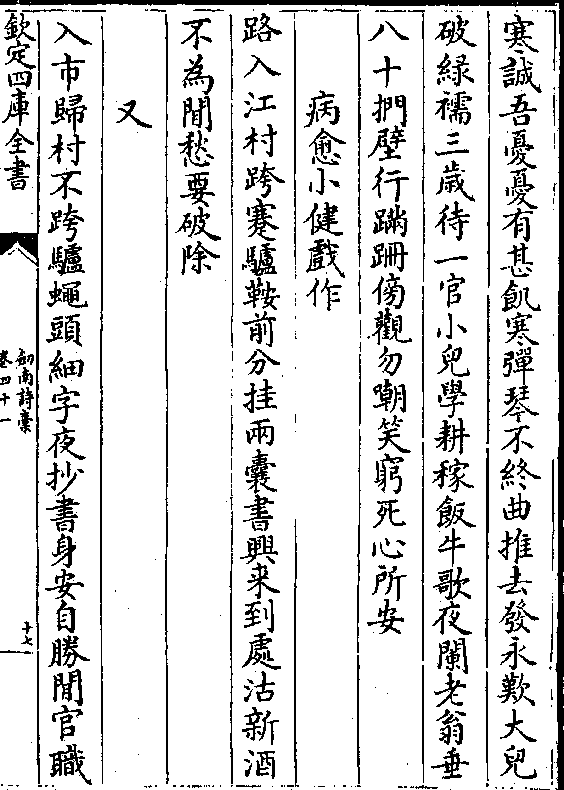 寒誠吾憂憂有甚飢寒彈琴不終曲推去發永歎大兒
破綠襦三歳待一官小兒學耕稼飯牛歌夜闌老翁垂
八十捫壁行蹣跚傍觀勿嘲笑窮死心所安
病愈小健戲作
路入江村跨蹇驢鞍前分挂兩囊書興来到處沽新酒
不為閒愁要破除
又
入市歸村不跨驢蠅頭細字夜抄書身安自勝閒官職
欽定四庫全書
劍南詩稾
卷四十一
十七